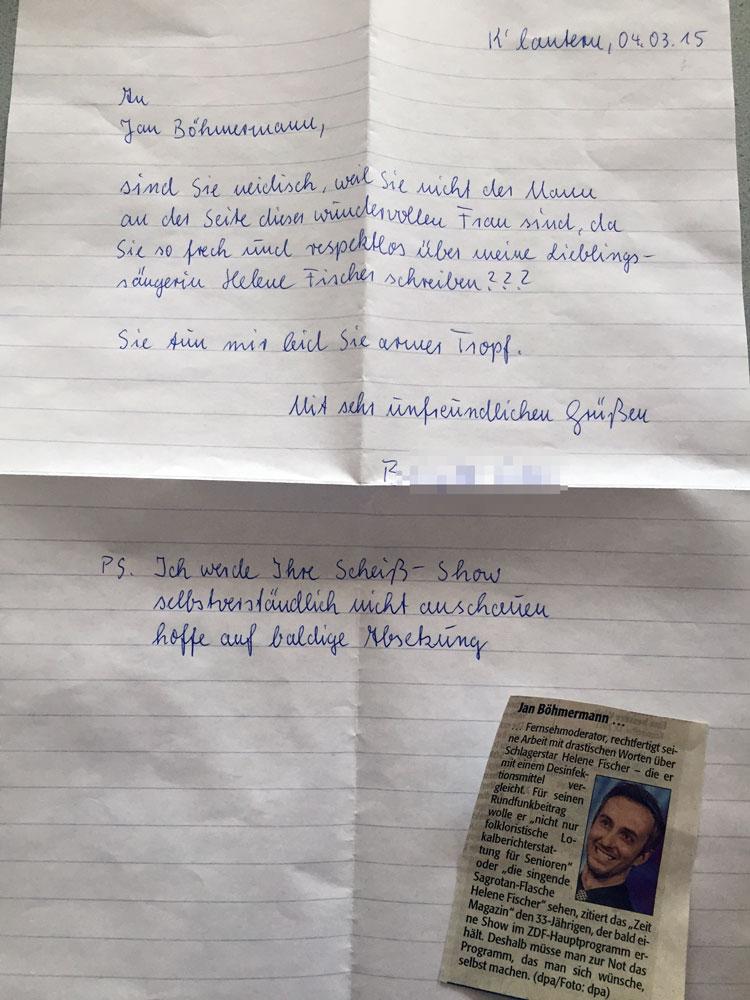 K'lautern, 04.03.15
An
Jan Böhmermann,
sind Sie neidisch, weil Sie nicht der Mann
an der Seite dieser wundervollen Frau sind, da
Sie so frech und respektlos über meine Lieblings-
sängerin Helene Fischer schreiben???
Sie tun mir leid Sie armer Tropf.
Mit sehr unfreundlichen Grüßen
PS. Ich werde Ihre Scheiß-Show
selbstverständlich nicht anschauen
hoffe auf baldige Absetzung
Jan Böhmermann ...
... Fernsehmoderator, rechtfertigt sei-
ne Arbeit mit drastischen Worten über
Schlagerstar Helene Fischer – die er
mit einem Desinfek-
tionsmittel ver-
gleicht. Für seinen
Rundfunkbeitrag
wolle er „nicht nur
folkloristische Lo-
kalberichterstat-
tung für Senioren“
oder „die singende
Sagrotan-Flasche
Helene Fischer“ sehen, zitiert das „Zeit
Magazin“ den 33-Jährigen, der bald ei-
ne Show im ZDF-Hauptprogramm er-
hält. Deshalb müsse man zur Not das
Programm, das man sich wünsche,
selbst machen. (dpa/Foto: dpa)